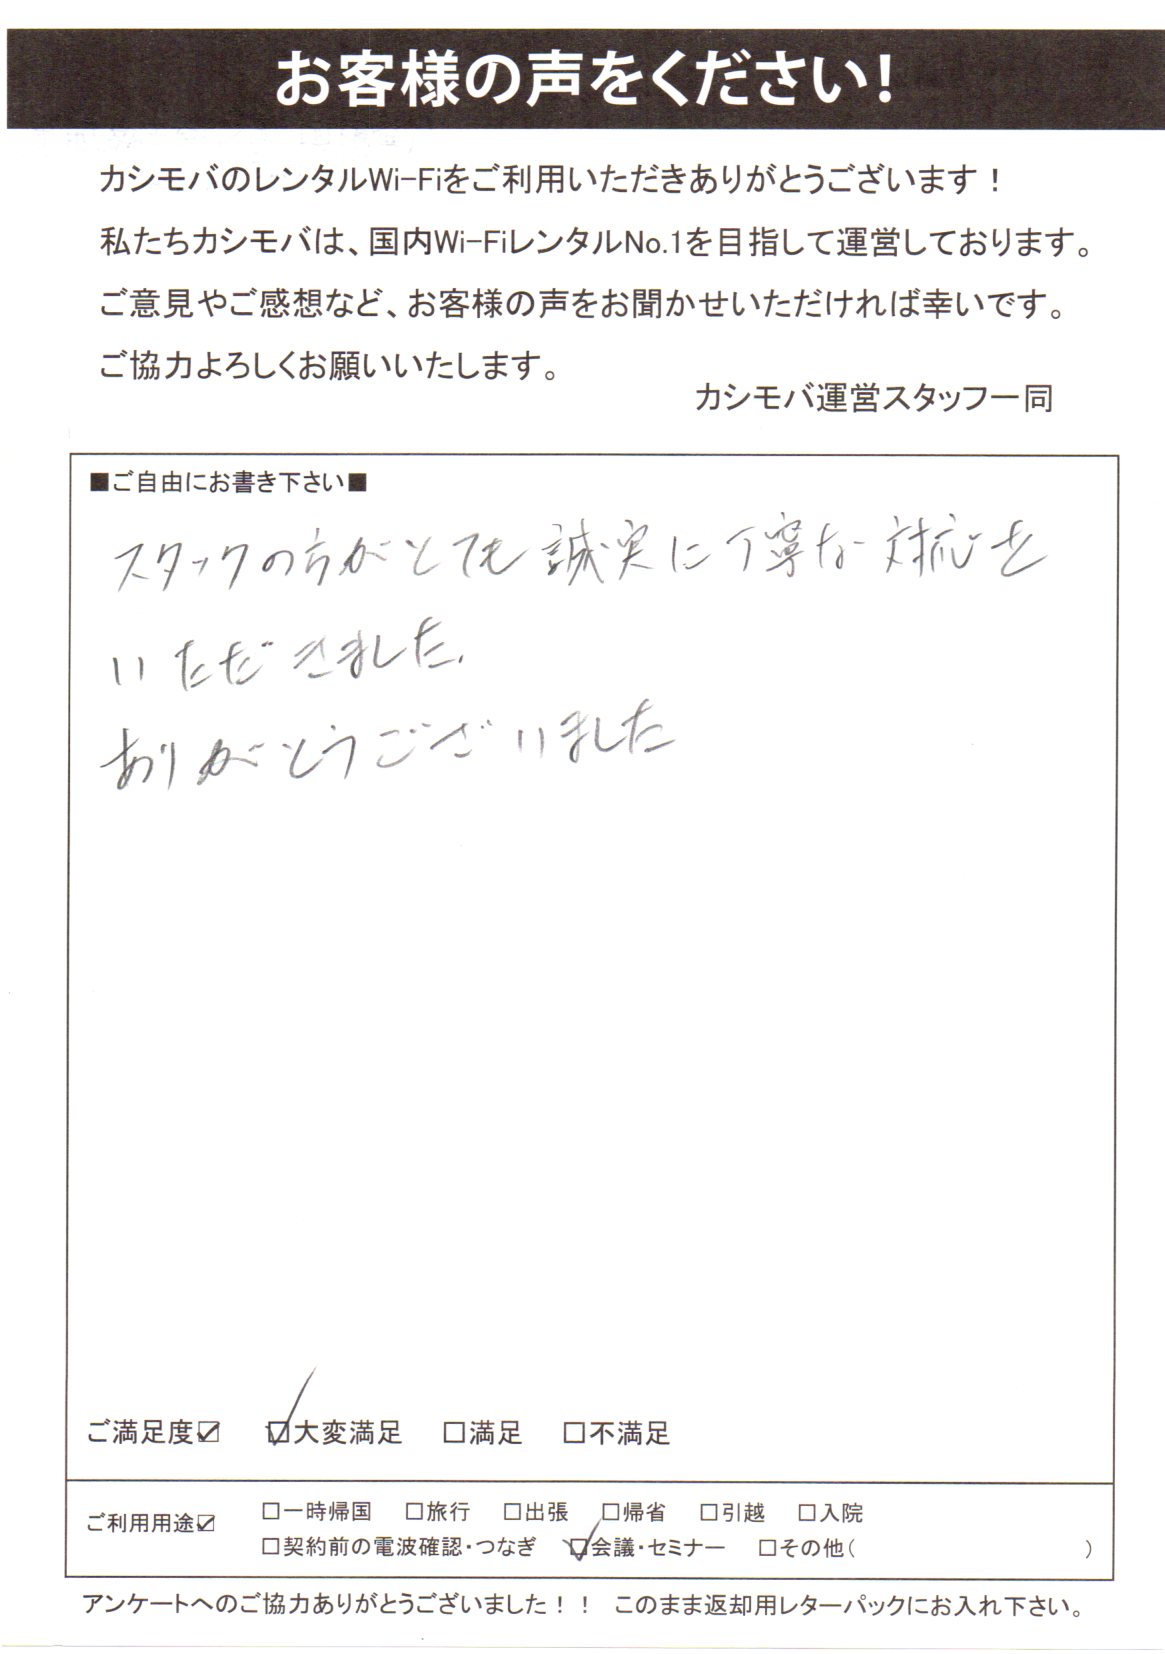 お客様の声をください！
カシモバのレンタルWi-Fiをご利用いただきありがとうございます！
私たちカシモバは、国内Wi-FiレンタルNo.1を目指して運営しております。
ご意見やご感想など、お客様の声をお聞かせいただければ幸いです。
ご協力よろしくお願いいたします。
カシモバ運営スタッフ一同
■ご自由にお書き下さい■
スタッフの方がとても誠実に丁寧な対応を
いただきました。
ありがとうございました
ご満足度☑ ☑大変満足 □満足 □不満足
ご利用用途☑ □一時帰国 □旅行 □出張 □帰省 □引越 □入院
□契約前の電波確認・つなぎ ☑会議・セミナー □その他（ ）
アンケートへのご協力ありがとうございました！！ このまま返却用レターパックにお入れ下さい。